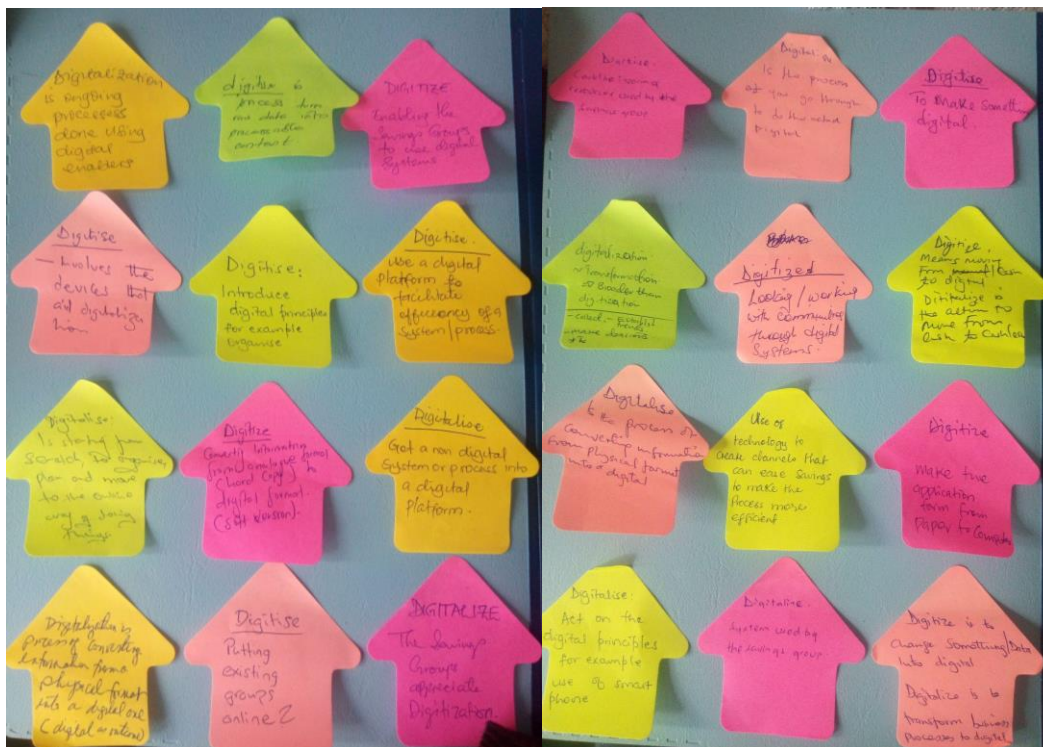 Digitalization
is anything
processess
done using
digital
enablers
digitise is
process turn
raw data into
content
DIGITIZE
Enabling the
Savings Groups
to use digital
Systems
Digitise
- Evolves the
devices that
aid digitaliza
tion
Digitise:
Introduce
digital principles
for example
Organise
Digitise.
Use a digital
Platform to
facilitate
efficiency of a
System/process.
Digitalise:
Is starting from
scratch, organise,
plan and move
to the online
way of doing
things
Digitize
Convert Information
from analogue format
(Hard copy) to
digital format.
(Soft version).
Digitalise
Get a non digital
System or process into
a digital
Platform.
process of converting
information from a
physical format
into a digital one
Digitise
Putting
existing
groups
online
DIGITALIZE
The Savings
Groups
appreciate
Digitization.
Digitise
used by the
Savings group
Is the process
you go through
digital
Digitise
To make something
digital.
digitalization
Transformation
broader than
digitisation
Digitized
Looking/working
with Communities
through digital
Systems.
Digitize.
Means moving
from Cash
to digital
the action to
move from
Cash to Cashless
Digitalise
is the process of
Converting information
from physical format
into a digital
Use of
technology to
create channels that
can ease savings
to make the
Process more
efficient
Digitize
make the
application
form from
Paper to Computer
Digitalise:
Act on the
digital principles
for example
use of smart
phone
Digitalise.
System used by
the savings group
Digitize is to
change something/Data
into digital
Digitalize is to
transform business
processes to digital